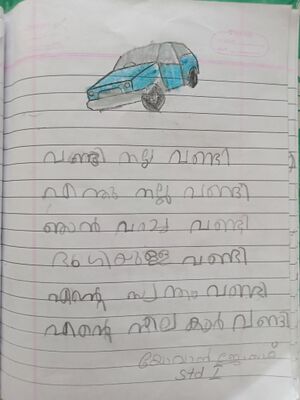 വണ്ടി നല്ല വണ്ടി
എന്തു നല്ല വണ്ടി
ഞാൻ വരച്ച വണ്ടി
ഭംഗിയുള്ള വണ്ടി
എന്റെ സ്വന്തം വണ്ടി
എന്റെ നീല കാർ വണ്ടി
std I